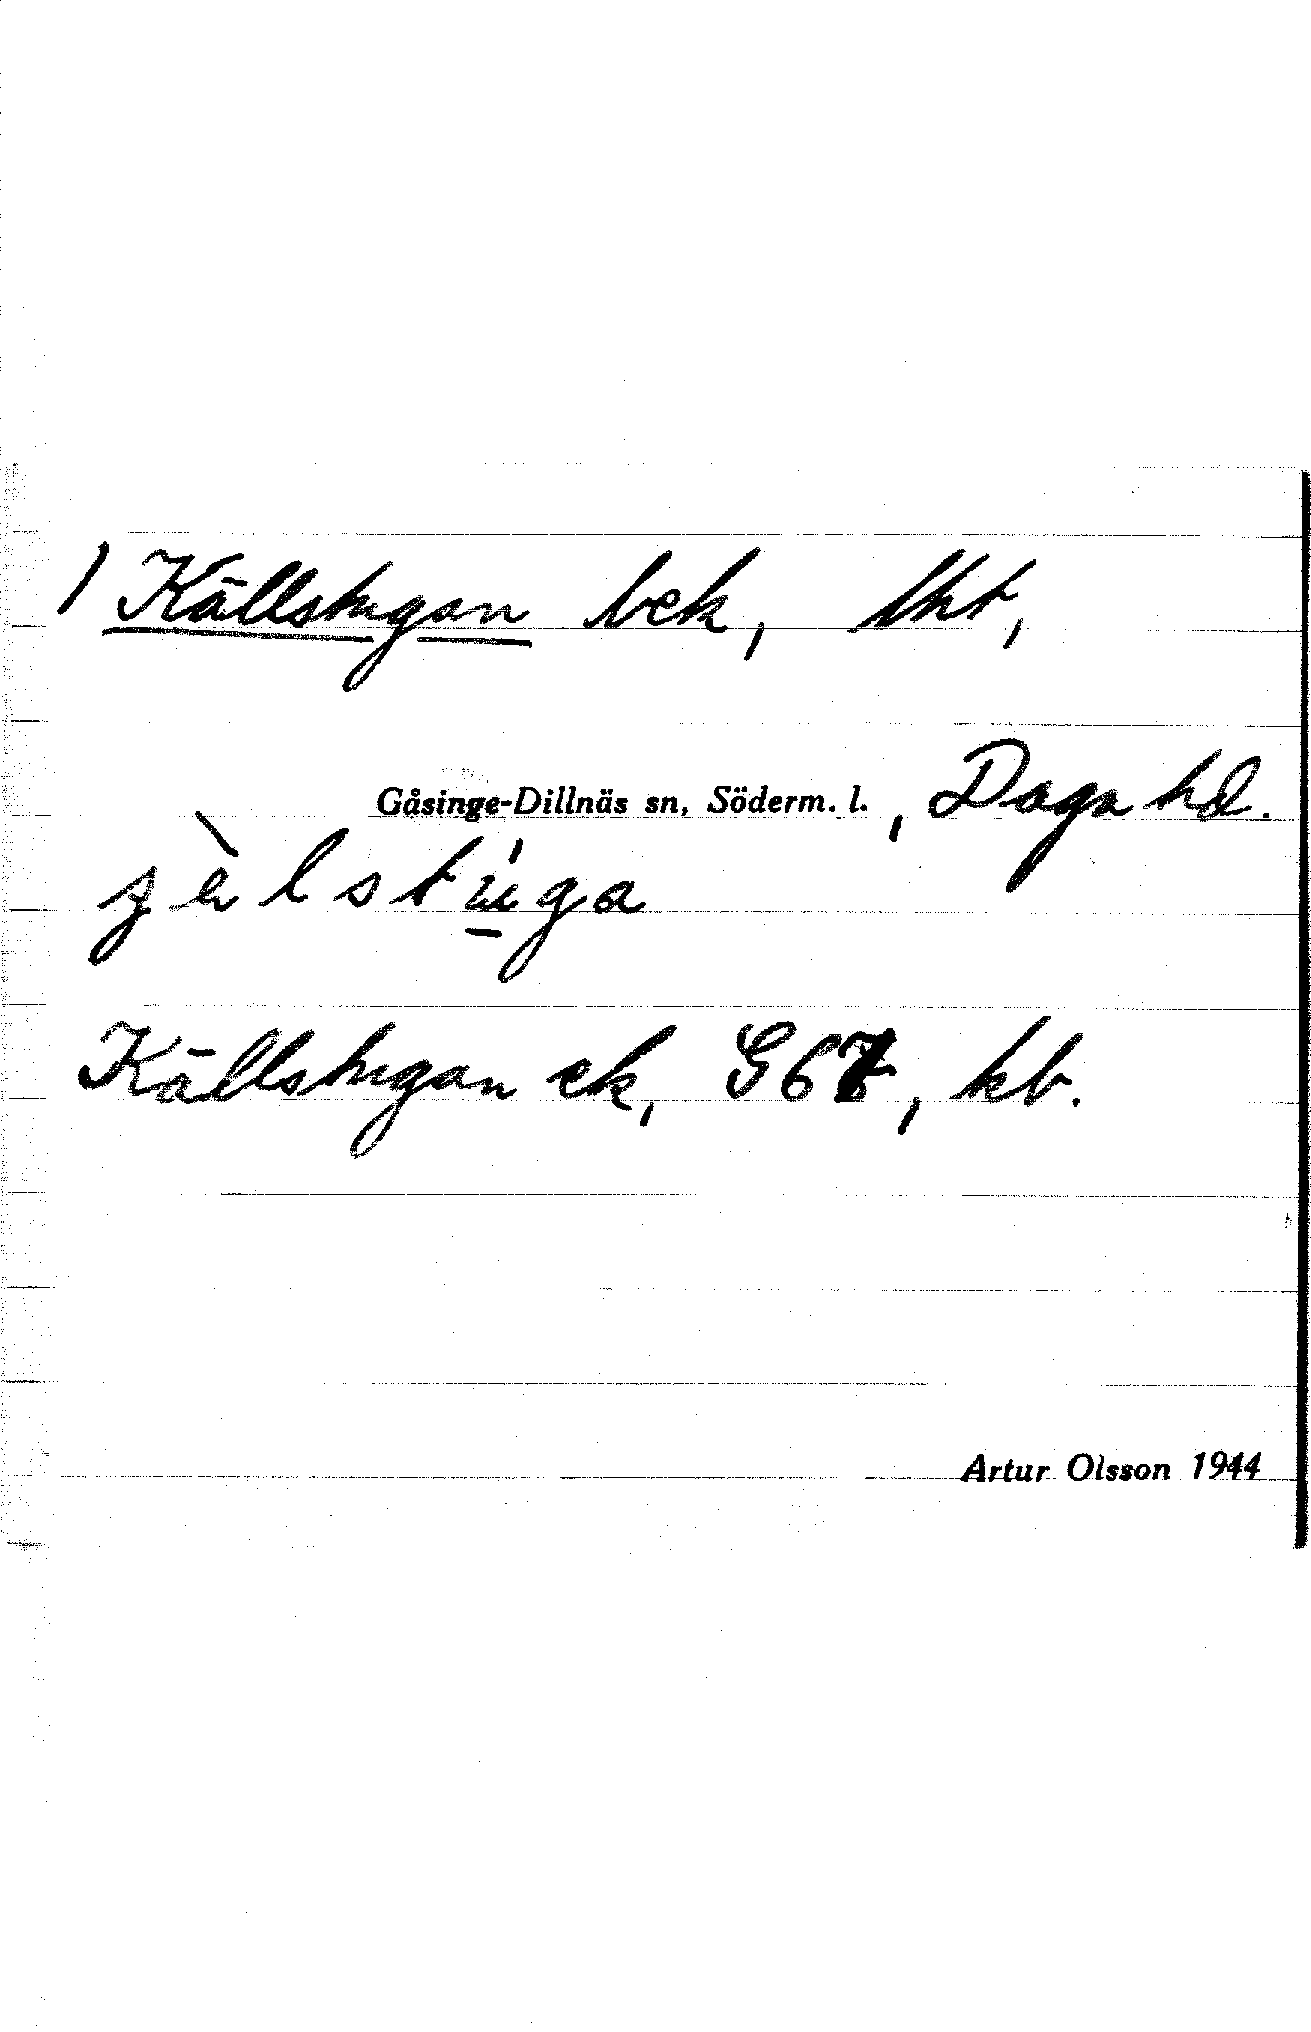 1 Källstugan bek, lht,
Gåsinge-Dillnäs sn, Söderm. l., Daga hd.
Källstugan ek, G67, kb.
Artur Olsson 1944